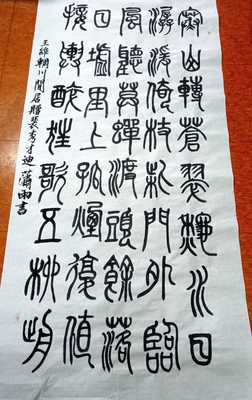 寒山轉蒼翠秋水日
潺湲倚杖柴門外臨
風聽暮蟬渡頭餘落
日墟里上孤煙復值
接輿醉狂歌五柳前
王維輞川閒居贈裴秀才迪 蕭雨書